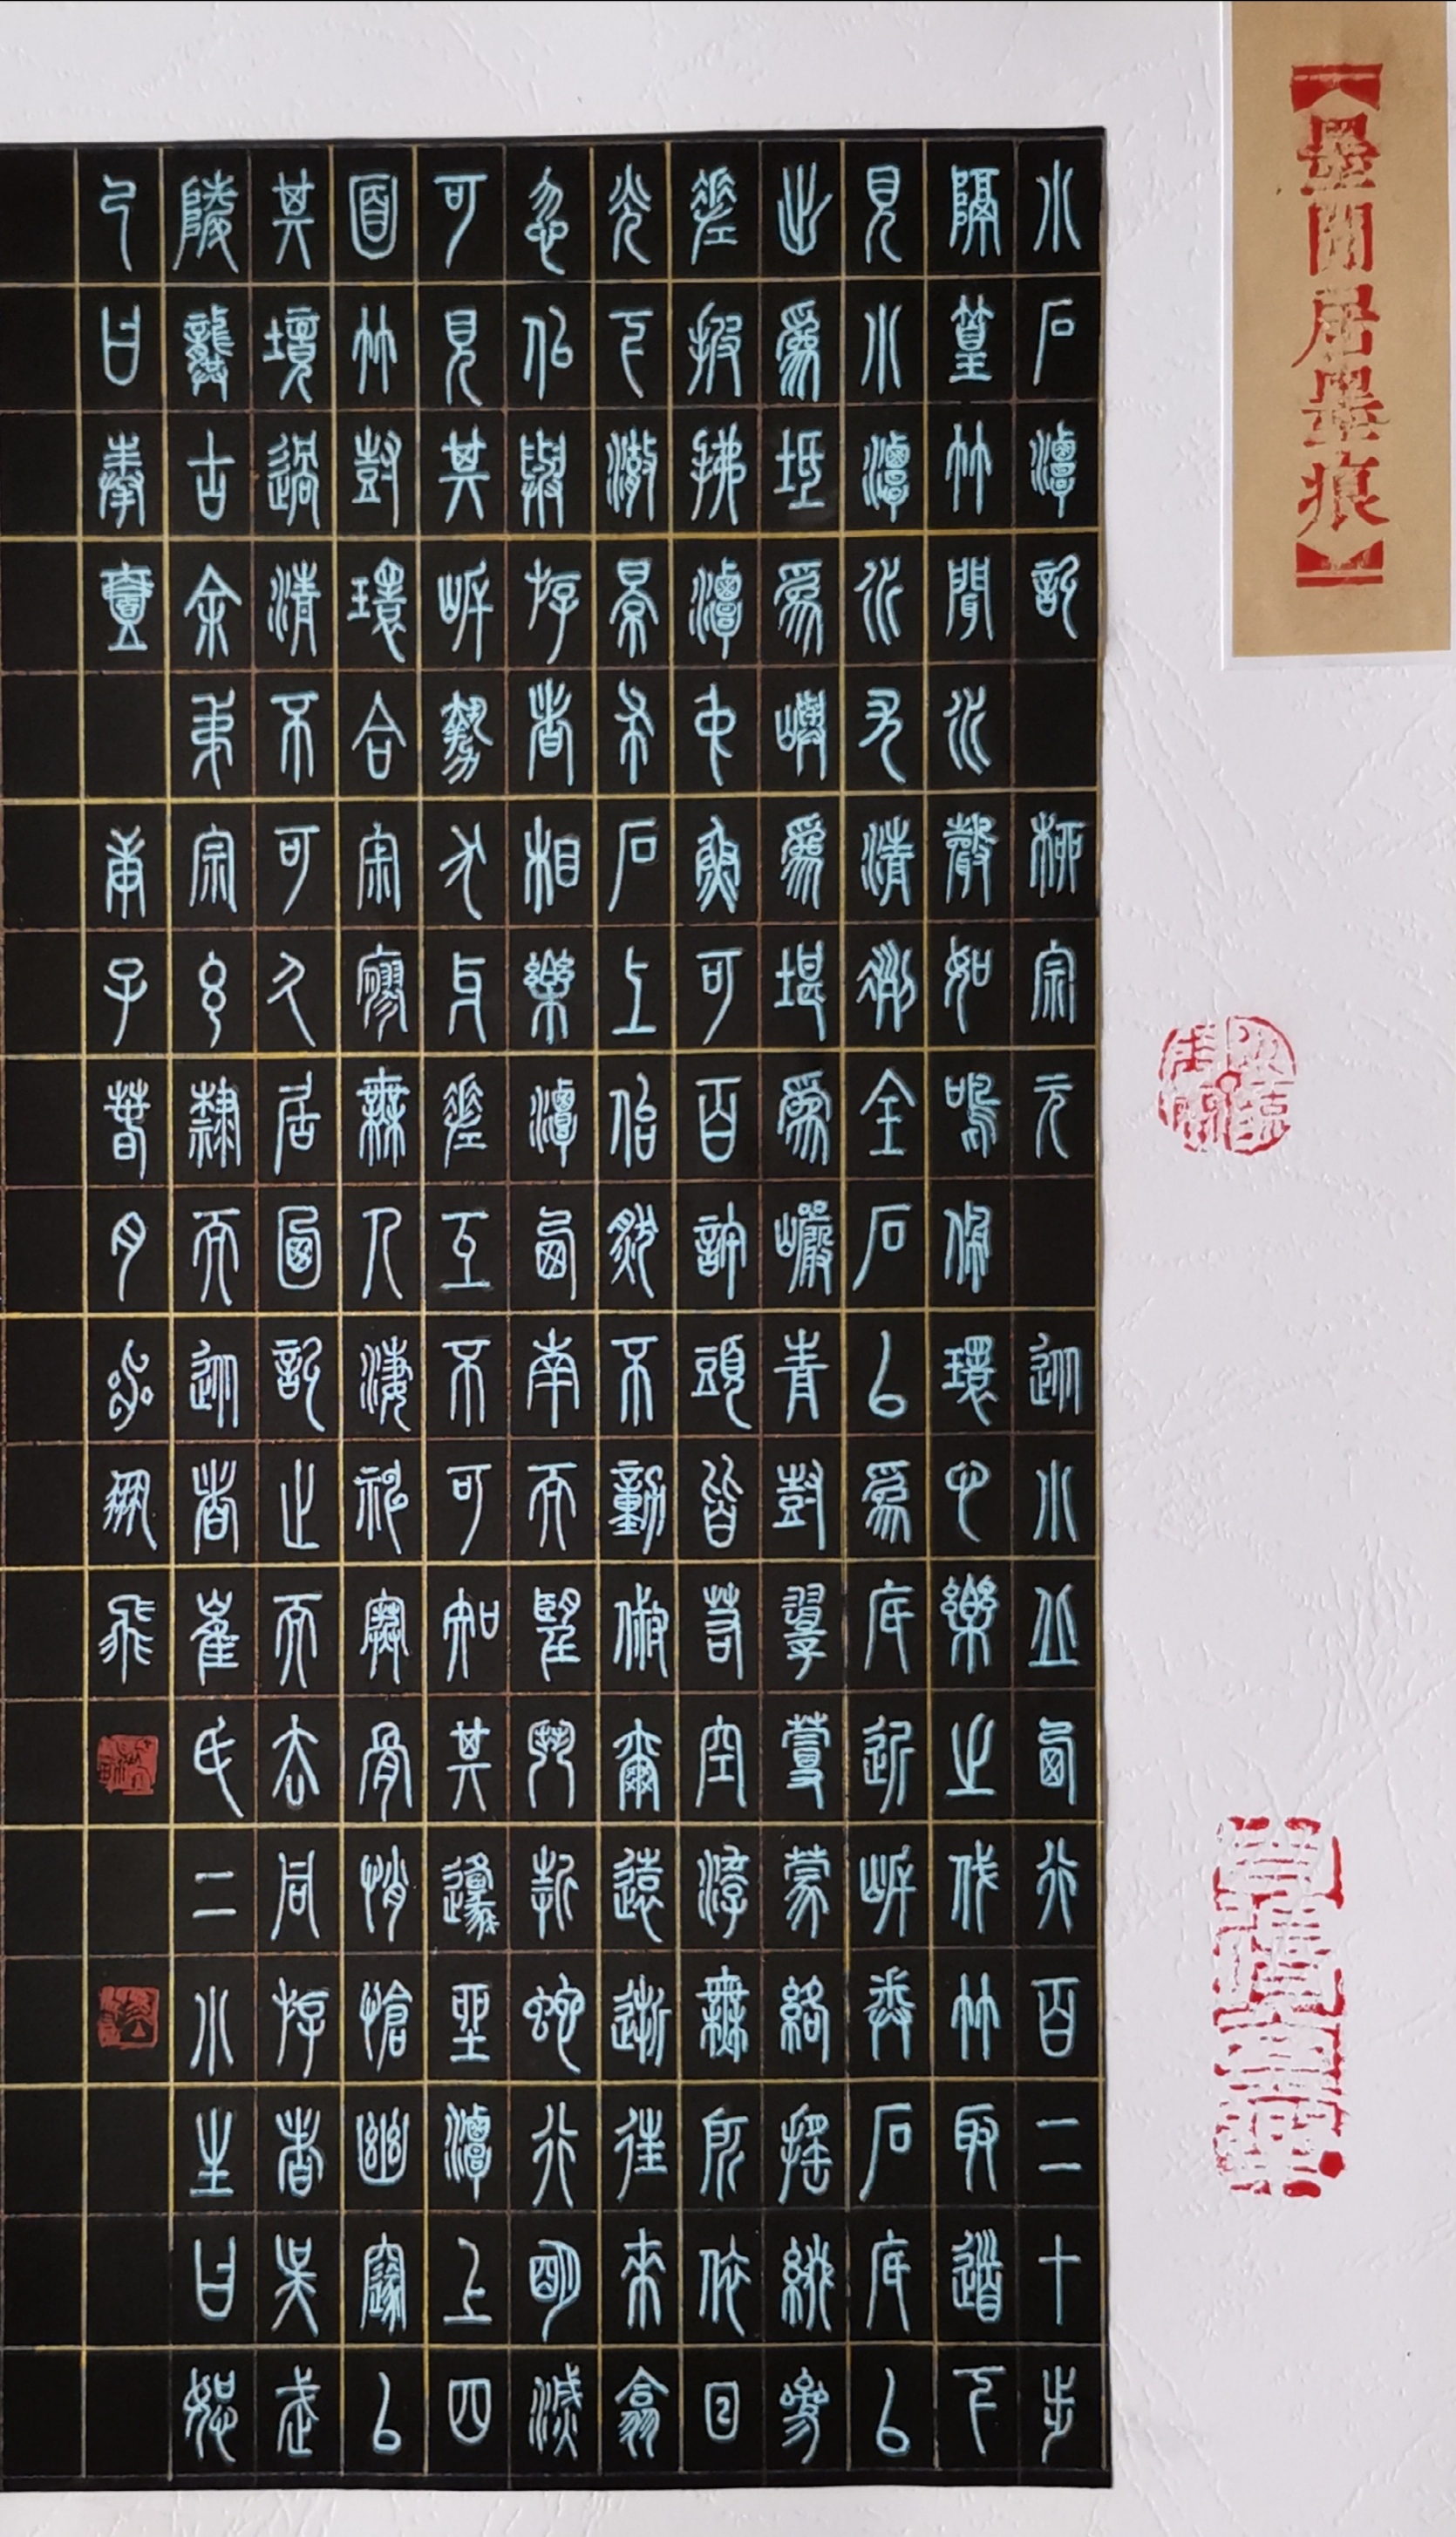 【墨閒居墨痕】
小石潭記 柳宗元 從小丘西行百二十步
隔篁竹聞水聲如鳴佩環心樂之伐竹取道下
見小潭水尤清冽全石以為底近岸卷石底以
出為坻為嶼為堪為巖青樹翠蔓蒙絡搖綴參
差披拂潭中魚可百許頭皆若空游無所依日
光下澈景布石上佁然不動俶爾遠逝往來翕
忽似與游者相樂潭西南而望斗折蛇行明滅
可見其岸勢犬牙差互不可知其源坐潭上四
面竹樹環合寂寥無人淒神寒骨悄愴幽邃以
其境過清不可久居迺記之而去同游者吳武
陵龔古余弟宗玄隸而從者崔氏二小生曰恕
己曰奉壹 庚子春月 飛